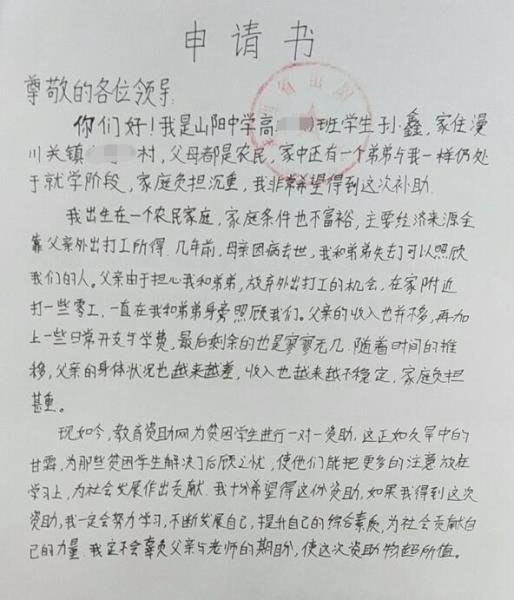 申请书
尊敬的各位领导:
你们好！我是山阳中学高班学生 小鑫，家住漫
川关镇村，父母都是农民，家中还有一个弟弟与我一样仍处
于就学阶段，家庭负担沉重，我非常希望得到这次补助.
我出生在一个农民家庭，家庭条件也不富裕，主要经济来源全
靠父亲外出打工所得.几年前，母亲因病去世，我和弟弟失去了可以照顾
我们的人。父亲由于担心我和弟弟，放弃外出打工的机会，在家附近
打一些零工，一直在我和弟弟身旁照顾我们。父亲的收入也并不多，再加
上一些日常开支与学费，最后剩余的也是寥寥无几.随着时间的推
移，父亲的身体状况也越来越差，收入也越来越不稳定，家庭负担
甚重。
现如今，教育资助网为贫困学生进行一对一资助，这正如久旱中的
甘霖，为那些贫困学生解决了后顾之忧，使他们能把更多的注意放在
学习上，为社会发展作出贡献.我十分希望得这份资助，如果我得到这次
资助，我一定会努力学习，不断发展自己，提升自己的综合素质，为社会贡献自
己的力量.我定不会辜负父亲与老师的期盼，使这次资助物超所值。